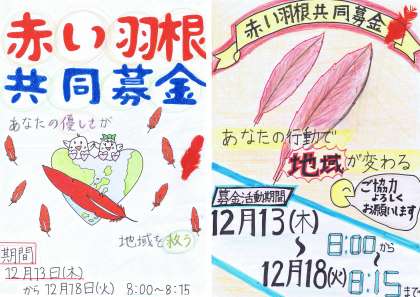 赤い羽根
共同募金
あなたの優しさが
地域を救う
期間
12月13日(木)
から 12月18日(火) 8:00〜8:15
赤い羽根共同募金
あなたの行動で
地域が変わる
ご協力
よろしく
お願いします!
募金活動期間
12月13(木)
〜
12月18(火)
8:00から
8:15まで